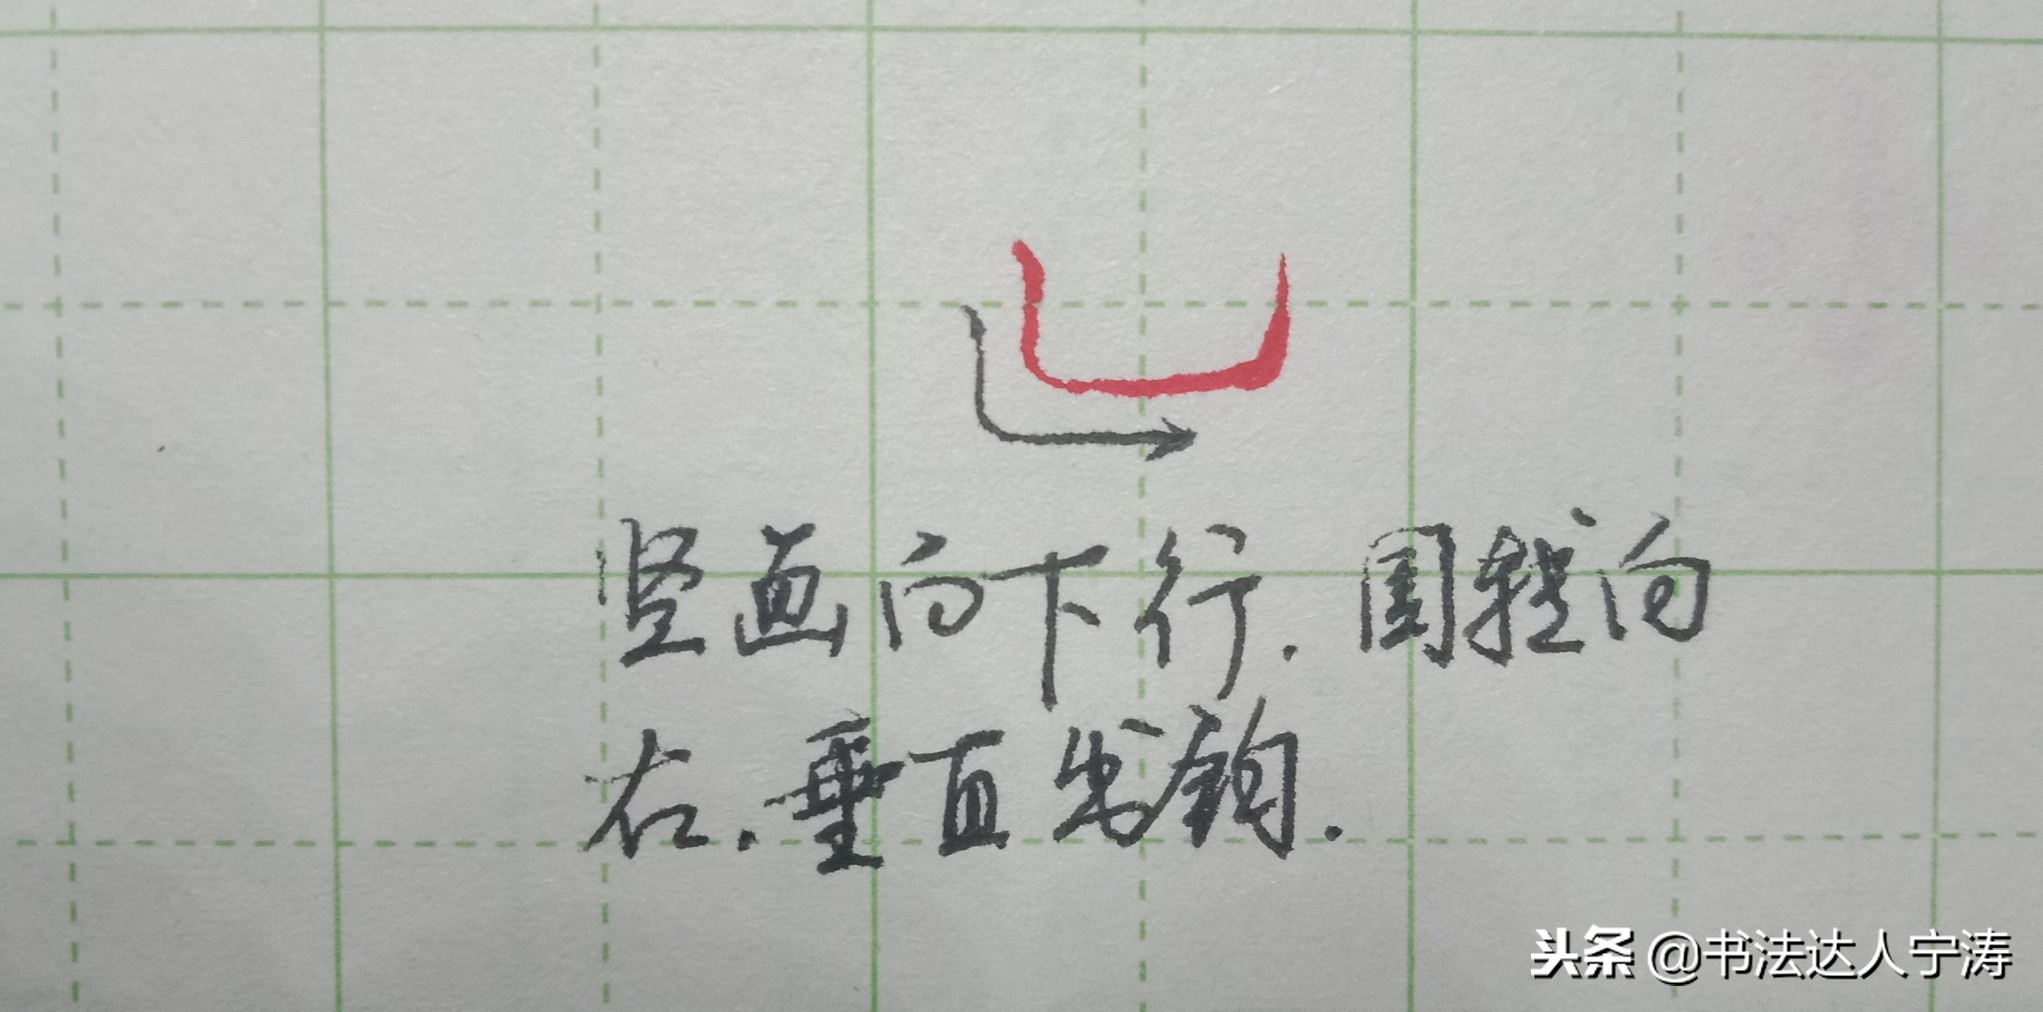 竖画向下行.圆转向
右.垂直出钩.
头条@书法达人宁涛